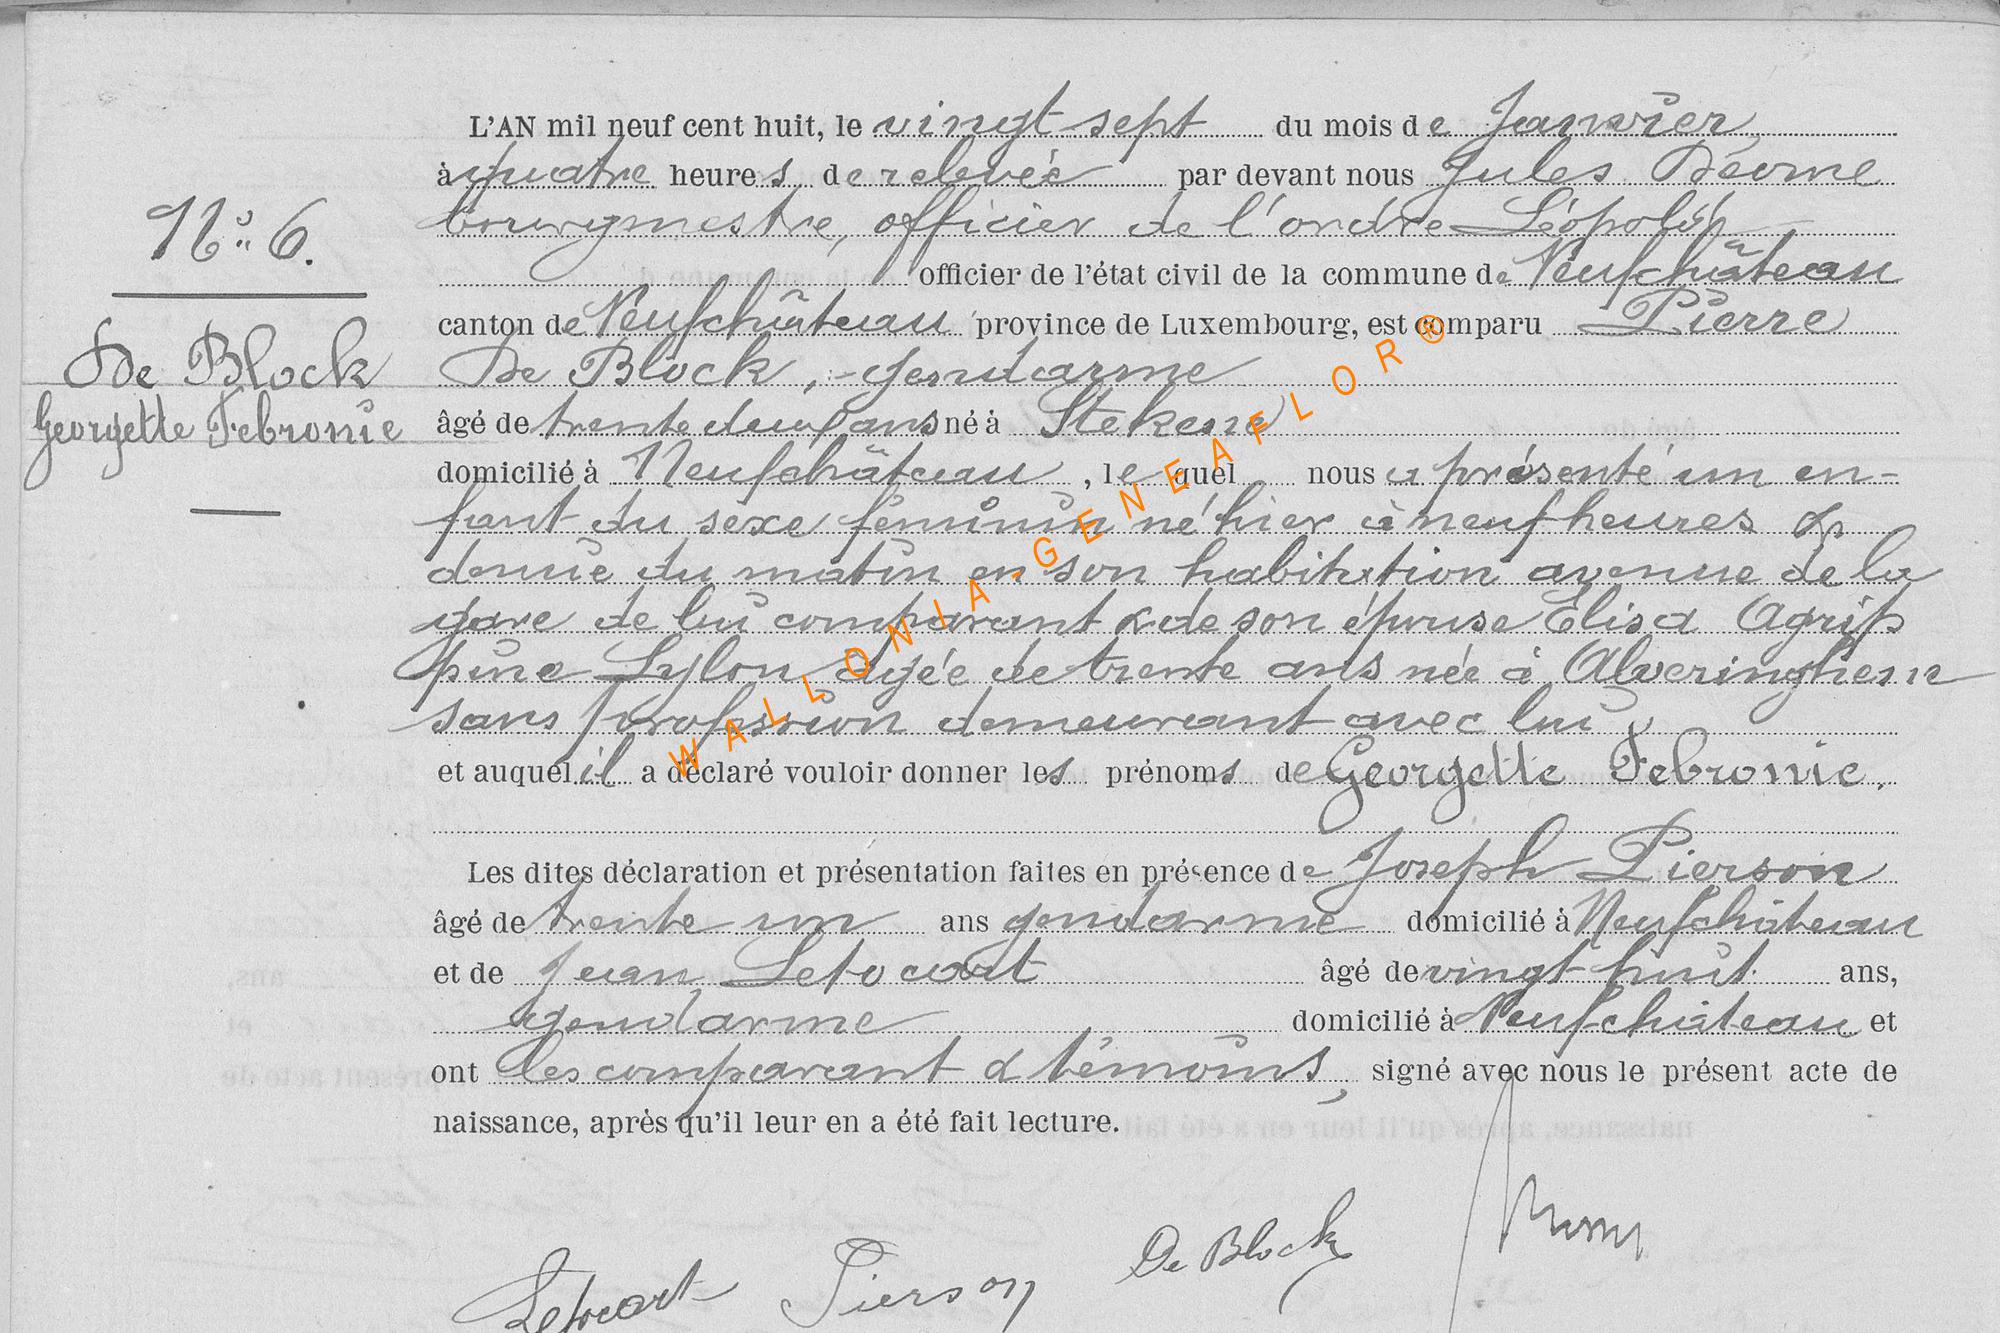 L'AN mil neuf cent huit, le vingt sept du mois de Janvier,
à quatre heures de relevée par devant nous Jules
bourgmestre, officier de l'ordre Léopold,
officier de l'état civil de la commune de Neufchâteau
canton de Neufchâteau province de Luxembourg, est comparu Pierre
De Block, gendarme
âgé de trente deux ans né à Stekene
domicilié à Neufchâteau, lequel nous a présenté un en-
fant du sexe féminin né hier à neuf heures &
demie du matin en son habitation avenue de la
gare de lui comparant & de son épouse Elisa Agrip
pine Lylon âgée de trente ans née à Alveringhem
sans profession demeurant avec lui
et auquel il a déclaré vouloir donner les prénoms de Georgette Febronie.
Les dites déclaration et présentation faites en présence de Joseph Pierson
âgé de trente un ans gendarme domicilié à Neufchâteau
et de Jean Letocart âgé de vingt huit ans,
gendarme domicilié à Neufchâteau et
ont les comparant & témoins, signé avec nous le présent acte de
naissance, après qu'il leur en a été fait lecture.
N° 6.
De Block
Georgette Febronie
De Block
Letocart Pierson
WALLONIA-GENEAFLOR®